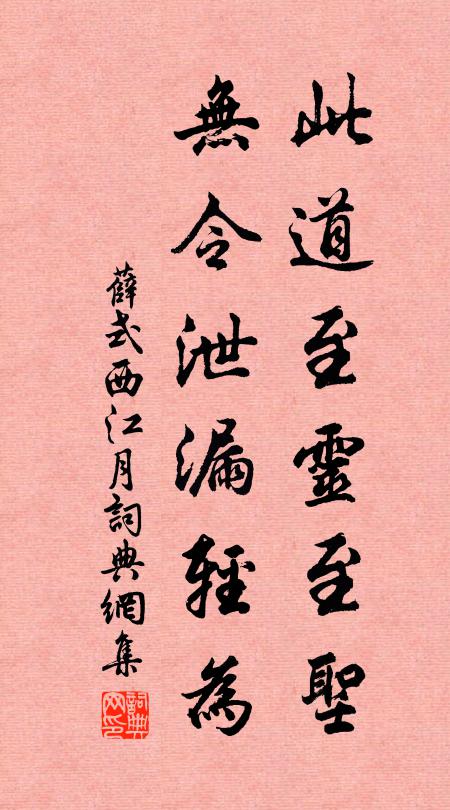 此道至靈至聖
無令泄漏輕為
薛式西江月詞典網集
詞典网印